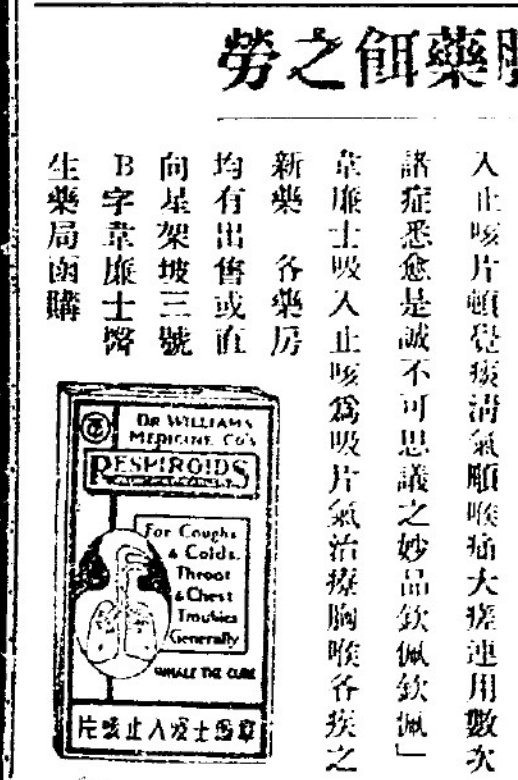 藥餌之勞
入止咳片頓覺痰清氣順喉痛大瘥連用數次
諸症悉愈是誠不可思議之妙品欽佩欽佩」
韋廉士吸入止咳爲吸片氣治療胸喉各疾之
新藥 各藥房
均有出售或直
向星架坡三號
B字韋廉士醫
生藥局函購
DR WILLIAMS
MEDICINE CO'S
RESPIROIDS
For Coughs
& Colds.
Throat
& Chest
Troubles
Generally
INHALE THE CURE
韋廉士吸入止咳片